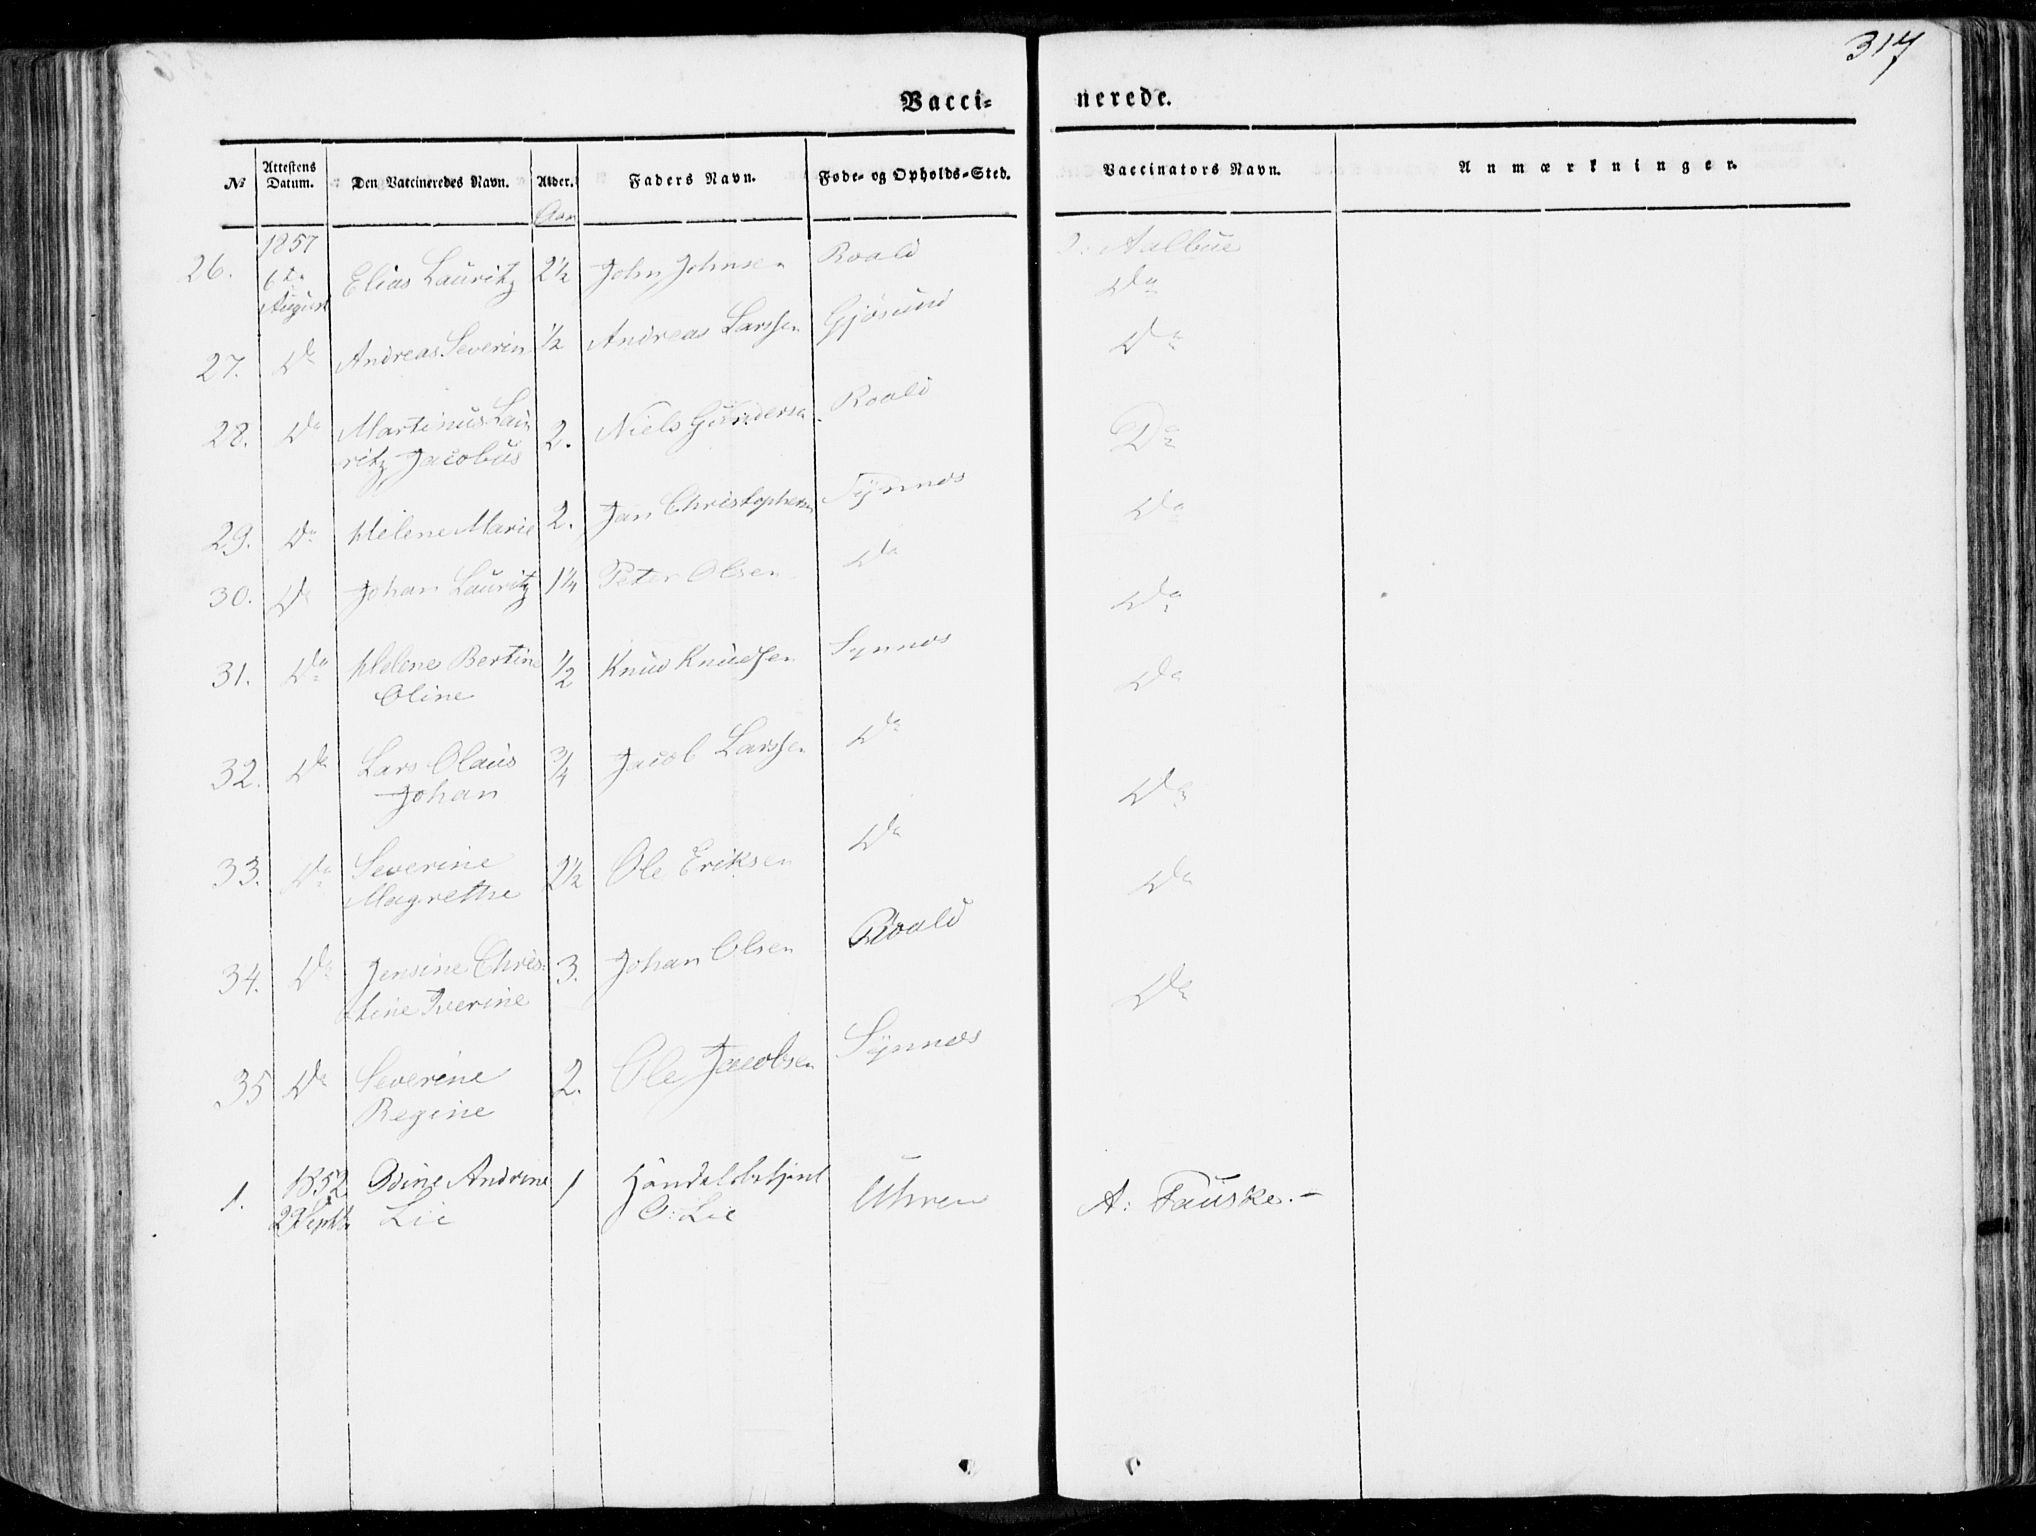 317
Vacci- nerede.
№ Attestens Datum. Den Vaccineredes Navn. Alder. Faders Navn. Føde- og Opholds-Sted. Vaccinators Navn. Anmærkninger.
Aar
26. 1857 6te August Elias Lauritz 2½ John Johnsen Roald Aalbue
Do
27. Do Andreas Severin ½ Andreas Larssen Gjøsund Do
28. Do Martinus Lau 2. Niels Gundersen Roald Do
ritz Jacobus
29. Do Helene Marie 2. Jan Christophersen Synnes Do
30. Do Johan Lauritz 1¼ Peter Olsen Do Do
31. Do Helene Bertine ½ Knud Knudsen Synnes Do
Oline
32. Do Lars Olaus ¾ Jacob Larssen Do Do
Johan
33. Do Severine 2½ Ole Eriksen Do Do
Magrethe
34. Do Jensine Chris- 3. Johan Olsen Roald Do
tine Iverine
35 Do Severine 2. Ole Jacobsen Synnes
Regine
1. 1852 Odine Andrine 1 Handelsbetjent Uhren A: Fauske.-
29 Septbr Lie O: Lie